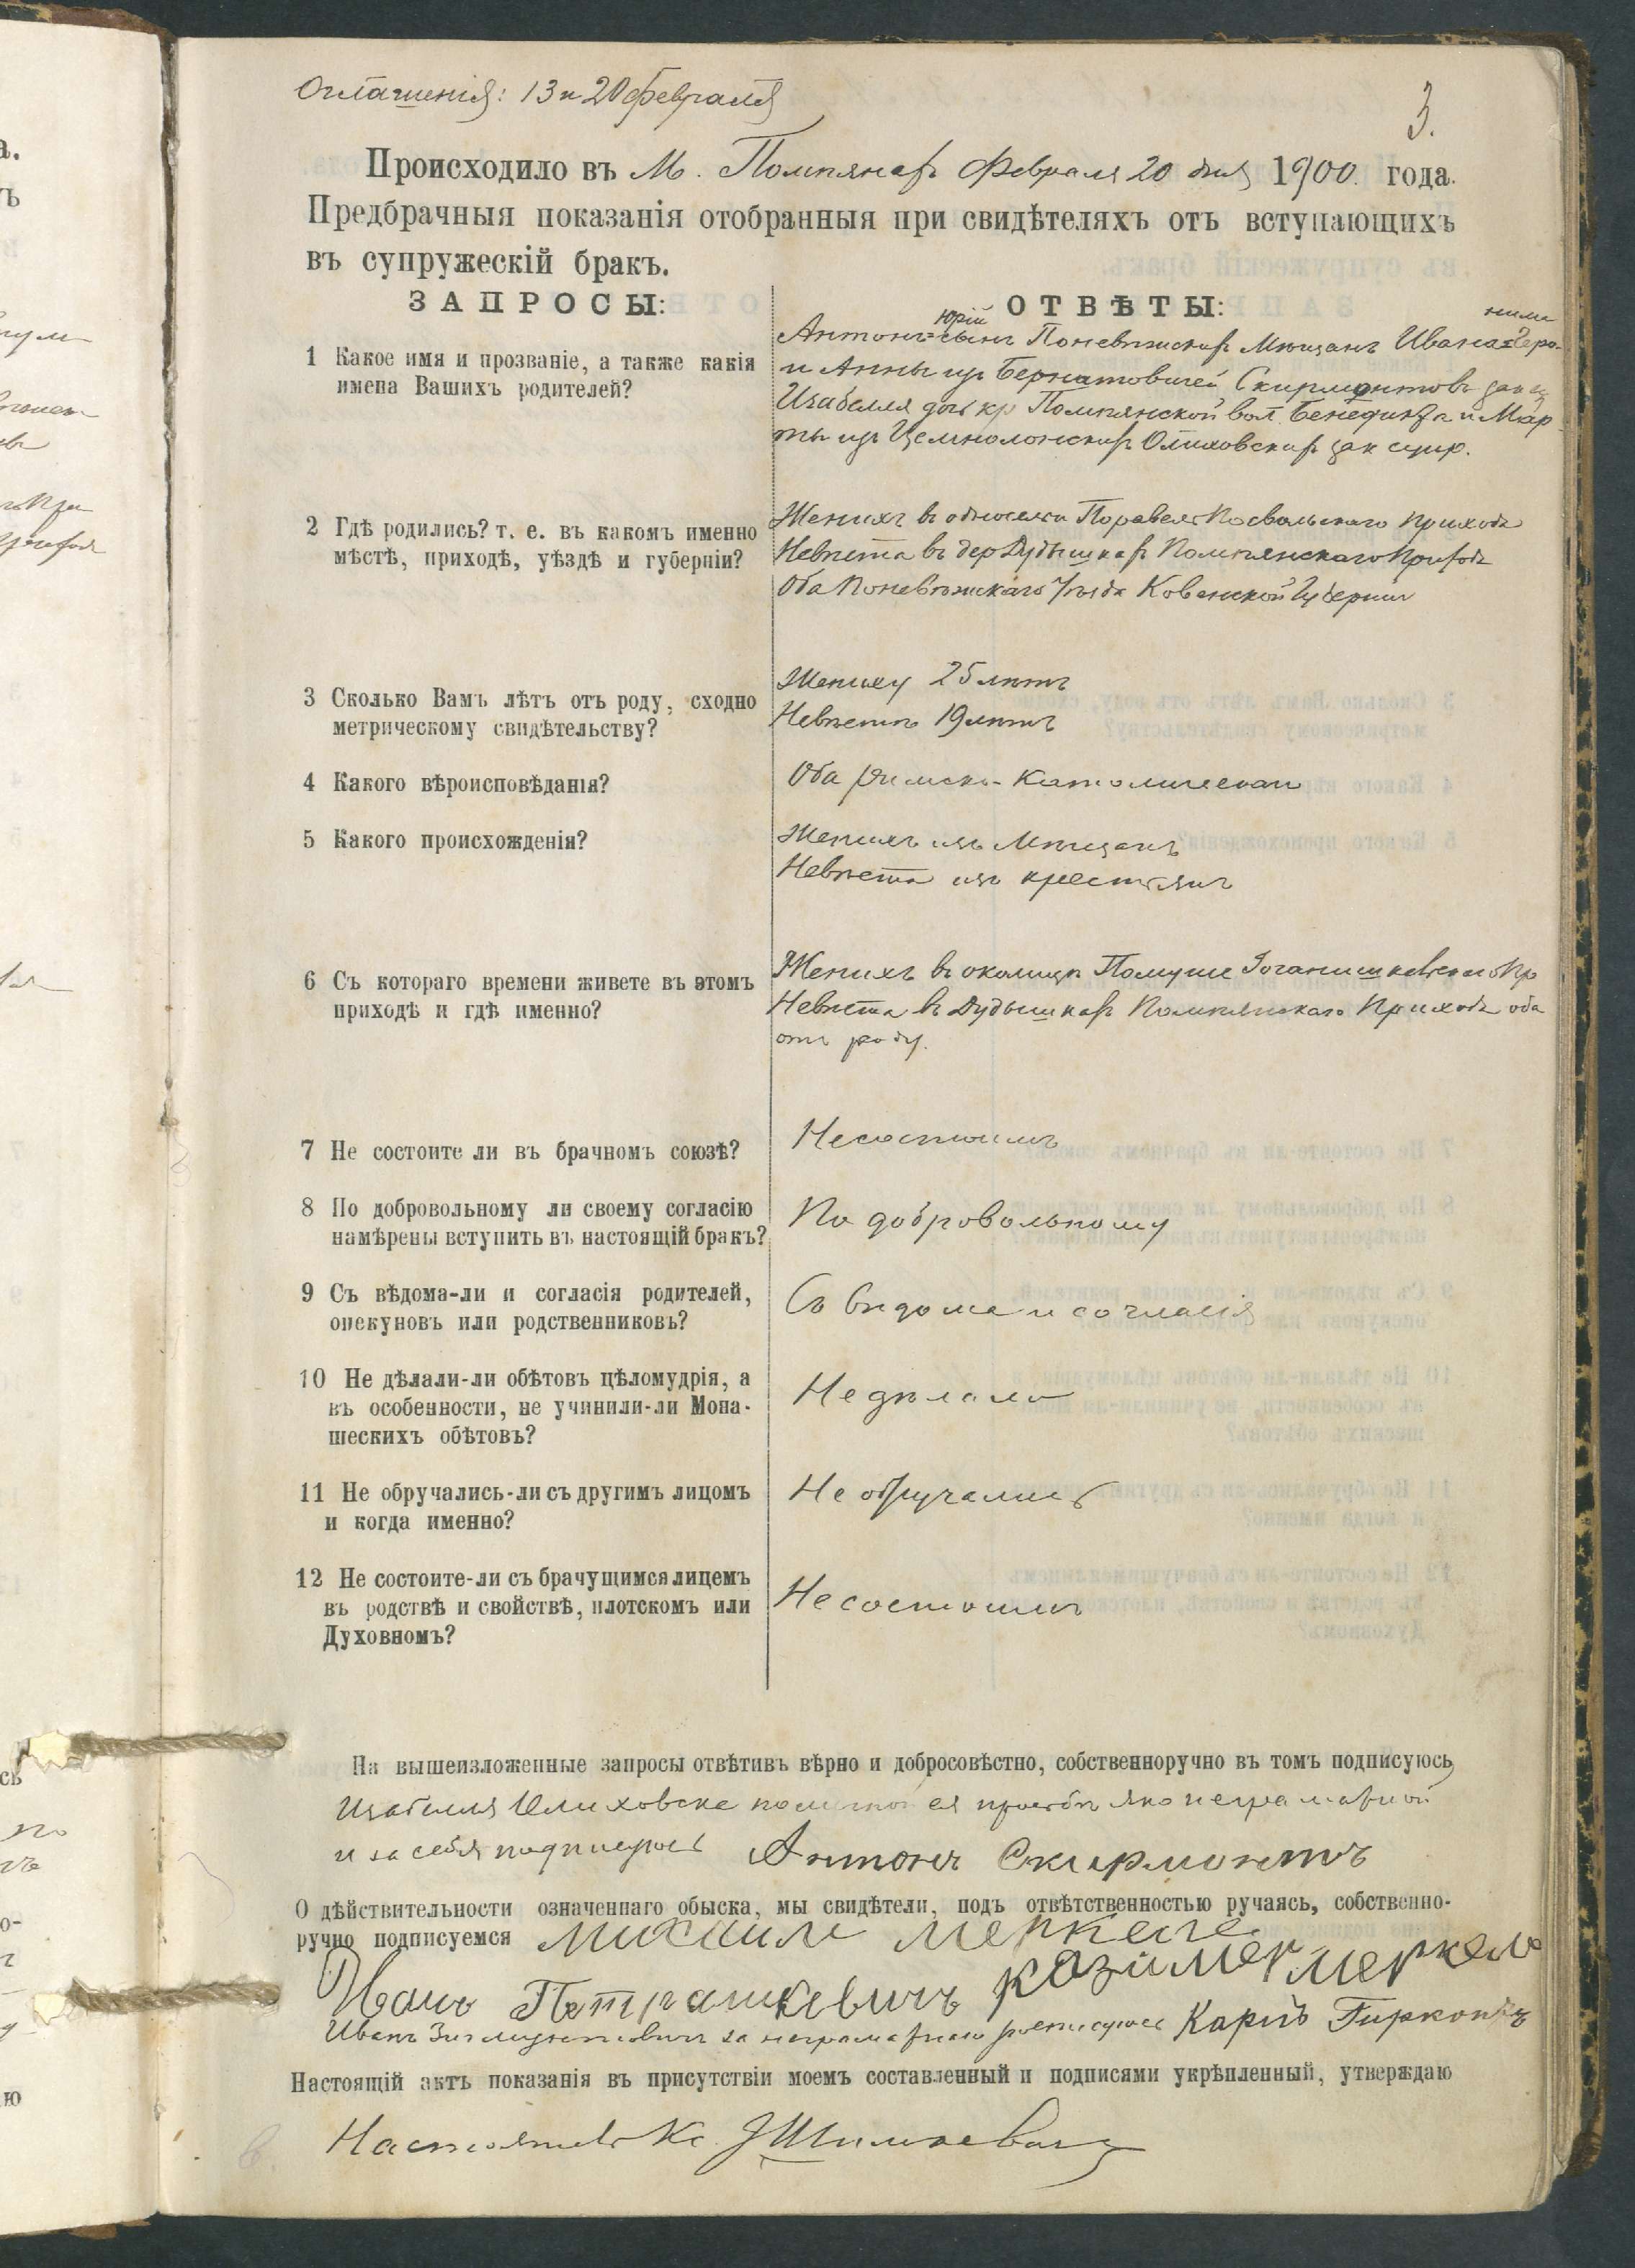 Оглашенія: 13 и 20 февраля
3.
Происходило въ М. Помпянахъ Февраля 20 дня 1900 года.
Предбрачныя показанія отобранныя при свидѣтеляхъ отъ вступающихъ
въ супружескій бракъ.
ЗАПРОСЫ:
ОТВѢТЫ:
1 Какое имя и прозваніе, а также какія
имена Вашихъ родителей?
Юрій
нима
Антонъ= сынъ Поневѣжскихъ Мѣщанъ Ивана=Геро-
и Анны изъ Бернатовичей Скирмонтовъ зак
Изабелля дочь кр Помпянской вол. Бенедикта и Мар-
ты изъ Олиховскихъ зак супр.
2 Гдѣ родились? т. е. въ какомъ именно
мѣстѣ, приходѣ, уѣздѣ и губерніи?
Женихъ въ Поравеля Посвольскаго прихода
Невѣста въ дер Дудышкахъ Помпянскаго Прихода
Оба Поневѣжскаго Уѣзда Ковенской Губерніи
3 Сколько Вамъ лѣтъ отъ роду, сходно
метрическому свидѣтельству?
Жениху 25 лѣтъ
Невѣстѣ 19 лѣтъ
4 Какого вѣроисповѣданія?
Оба Римско-Католическаго
5 Какого происхожденія?
Женихъ изъ Мѣщанъ
Невѣста изъ крестьянъ
6 Съ котораго времени живете въ этомъ
приходѣ и гдѣ именно?
Женихъ въ околицѣ Помуше Іоганишкельскаго Пр
Невѣста въ Дудышкахъ Помпянскаго Прихода оба
отъ роду.
7 Не состоите ли въ брачномъ союзѣ?
Несостоимъ
8 По добровольному ли своему согласію
намѣрены вступить въ настоящій бракъ?
По добровольному
9 Съ вѣдома-ли и согласія родителей,
опекуновъ или родственниковъ?
Съ вѣдома и согласія
10 Не дѣлали-ли обѣтовъ цѣломудрія, а
въ особенности, не учинили-ли Мона-
шескихъ обѣтовъ?
Не дѣлали
11 Не обручались-ли съ другимъ лицомъ
и когда именно?
Не обручались
12 Не состоите-ли съ брачущимся лицемъ
въ родствѣ и свойствѣ, плотскомъ или
Духовномъ?
Не состоимъ
На вышеизложенные запросы отвѣтивъ вѣрно и добросовѣстно, собственноручно въ томъ подписуюсь,
Изабелля Олиховска по личной ея просьбѣ яко неграматной
и за себя подписуюсь Антонъ Скирмонтъ
О дѣйствительности означеннаго обыска, мы свидѣтели, подъ отвѣтственностью ручаясь, собственно-
ручно подписуемся Михаилъ Меркеле
Иванъ Петрашкевичъ Казимер Меркель
Иванъ Зигмунтовичъ за неграматнаго росписуюсь Карпъ Гирконтъ
Настоящій актъ показанія въ присутствіи моемъ составленный и подписями укрѣпленный, утверждаю
Настоятель Кс. Шимкевичъ